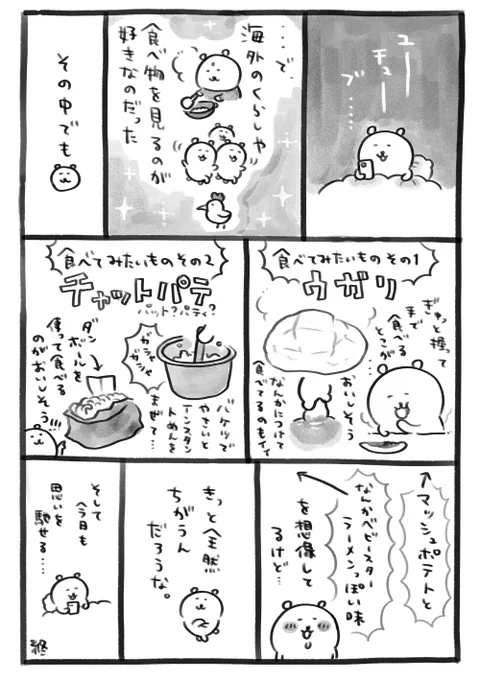 ユー
チュー
ブ……
…で、
海外のくらしや
食べ物を見るのが
好きなのだった
その中でも
食べてみたいもの その1
ウガリ
ぎゅっと握って
手で
食べる
ところが
おいしそう
なんかにつけて
食べてるのもイイ
食べてみたいもの その2
チャットパテ
パット?パティ?
ガシャ
ガシャ
バケツで
やさいと
インスタン
トめんを
まぜて…
ダン
ボールを
使って食べる
のがおいしそう!!!
マッシュポテトと
なんかベビースター
ラーメンっぽい味
を想像して
るけど…
きっと全然
ちがうん
だろうな。
そして
今日も
思いを
馳せる…
終